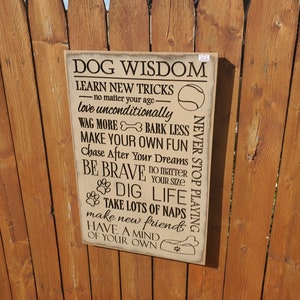 DOG WISDOM
LEARN NEW TRICKS
no matter your age
love unconditionally
WAG MORE BARK LESS
MAKE YOUR OWN FUN
Chase After Your Dreams
BE BRAVE no matter
your size
DIG LIFE
TAKE LOTS OF NAPS
make new friends
HAVE A MIND
OF YOUR OWN
NEVER STOP PLAYING